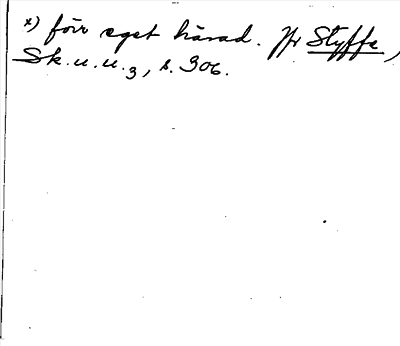 x) förr eget härad. Jfr Styffe,
Sk.u.u.3, s. 306.